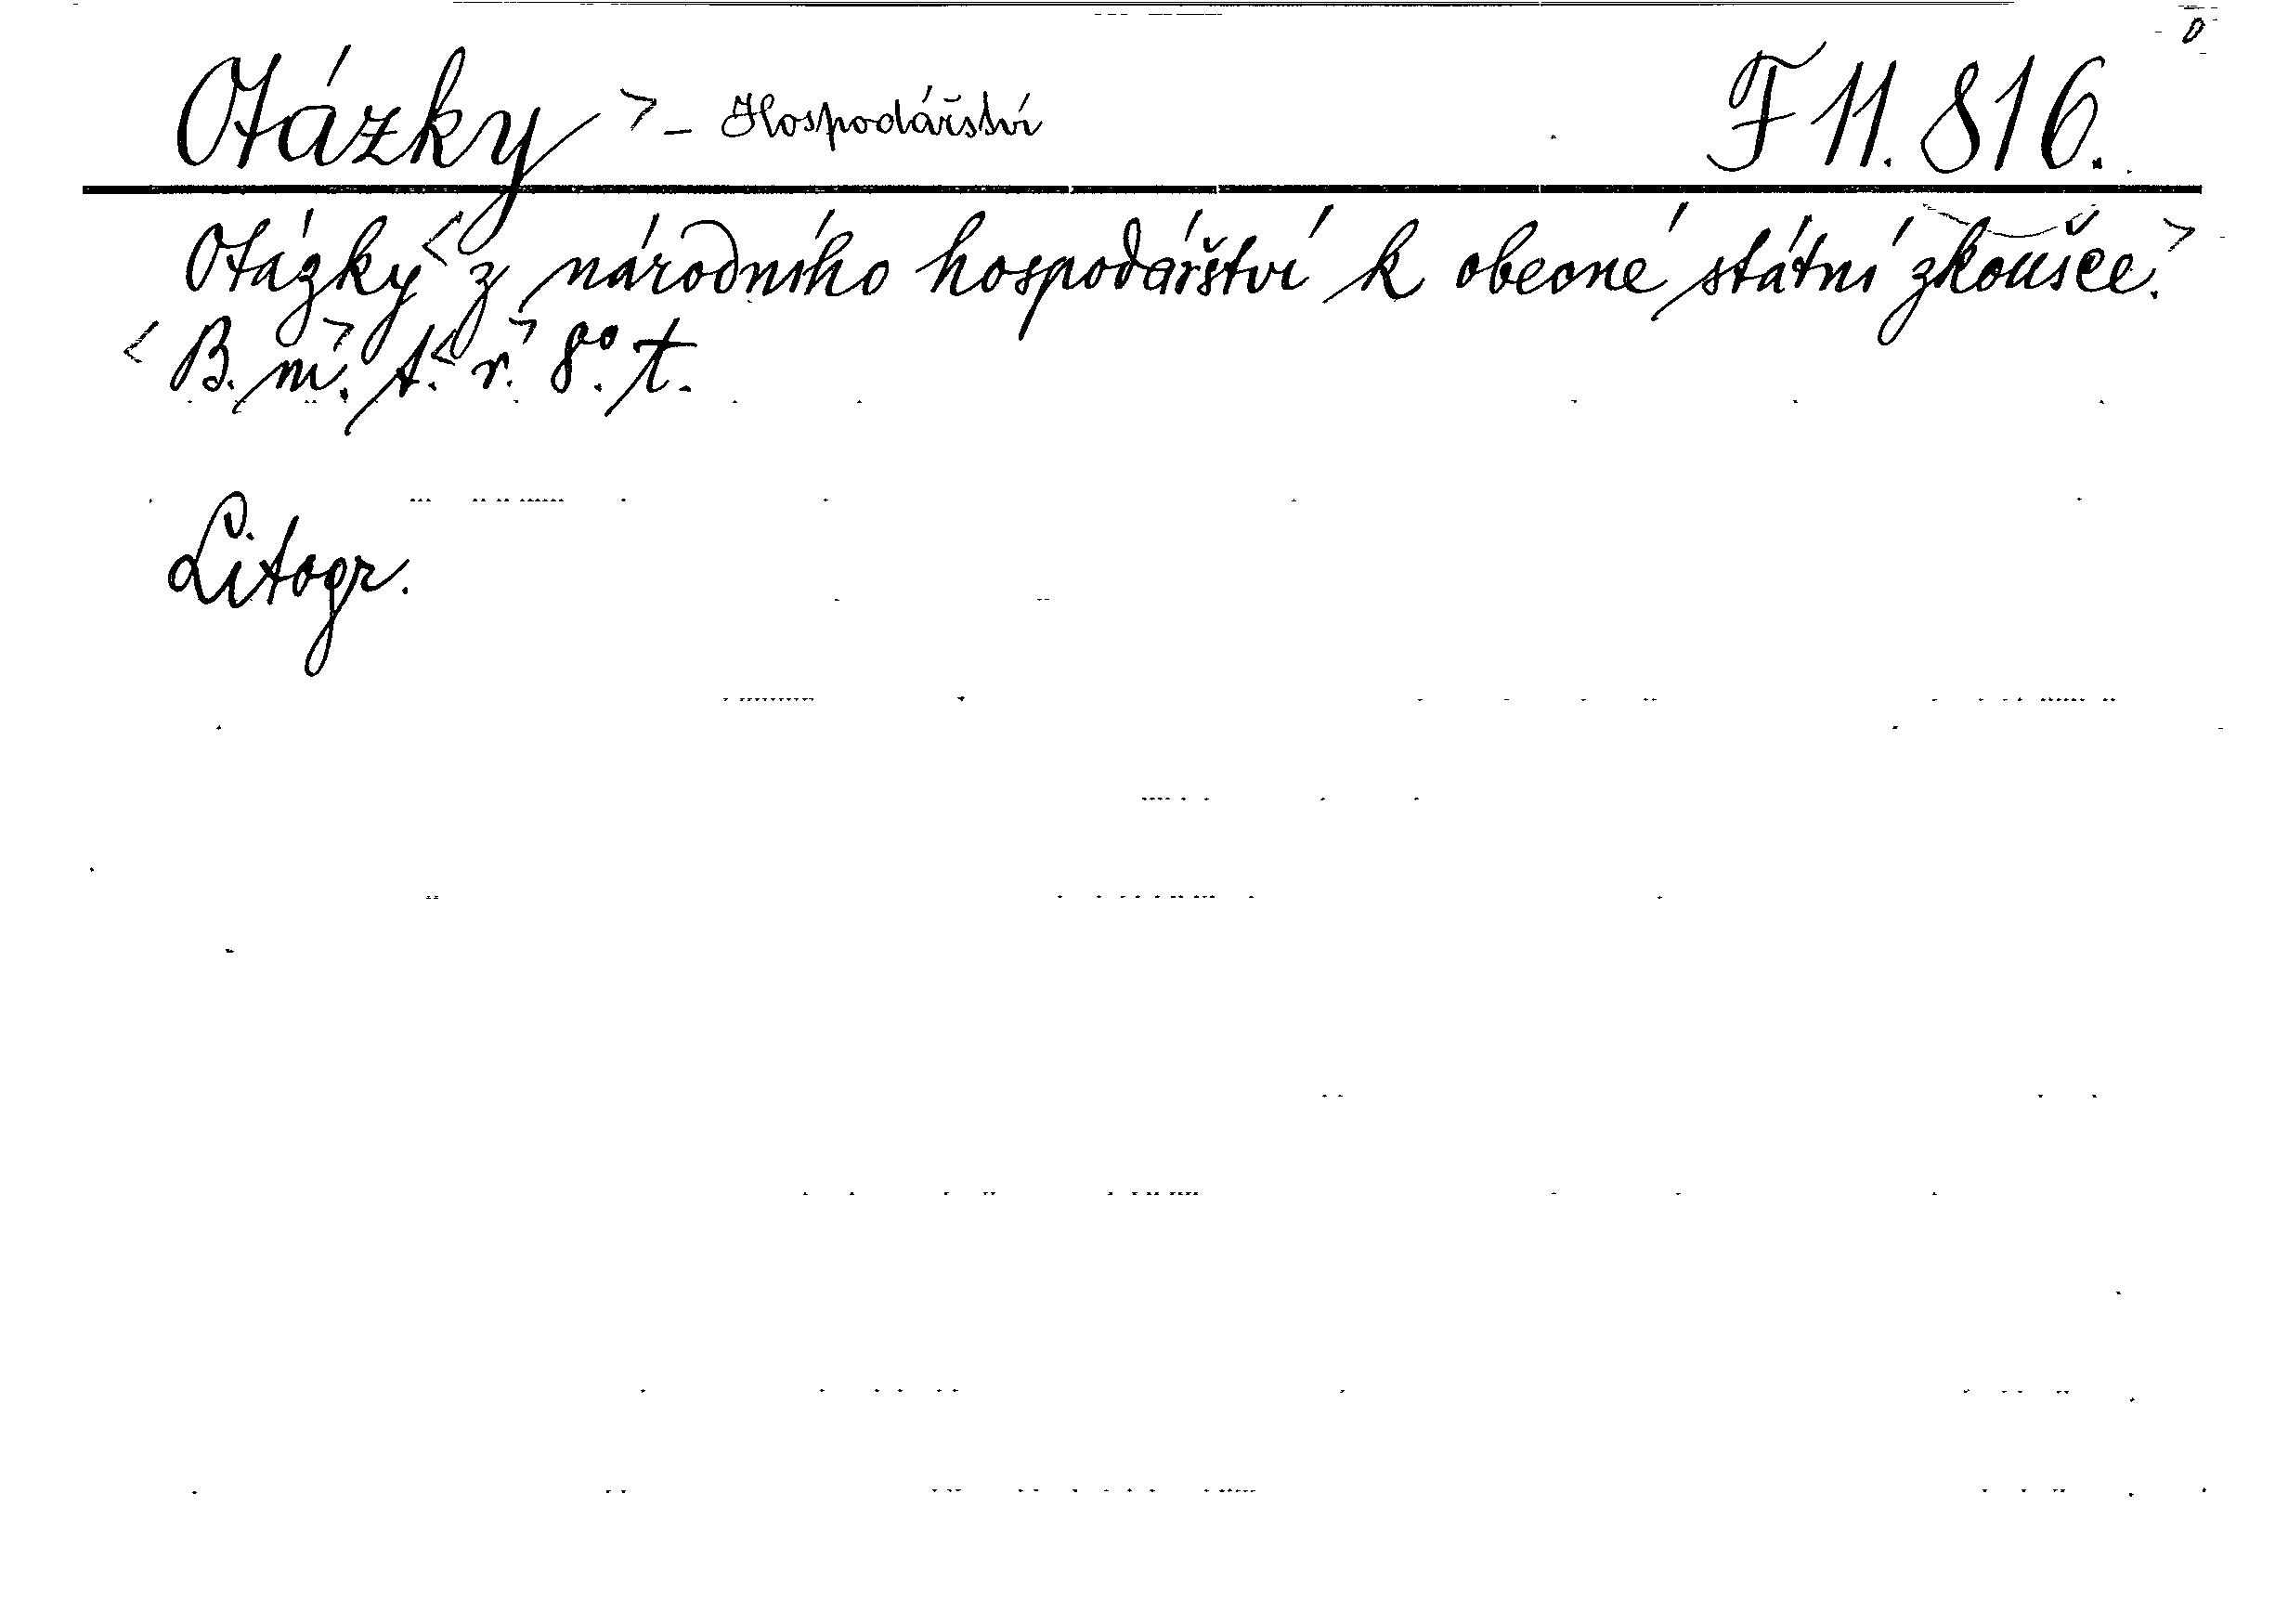 Otázky > - Hospodářství F 11. 816.
Otázky < z národního hospodářství k obecné státní zkoušce. >
< B. m. > t. < r. > 8°. t.
Litogr.